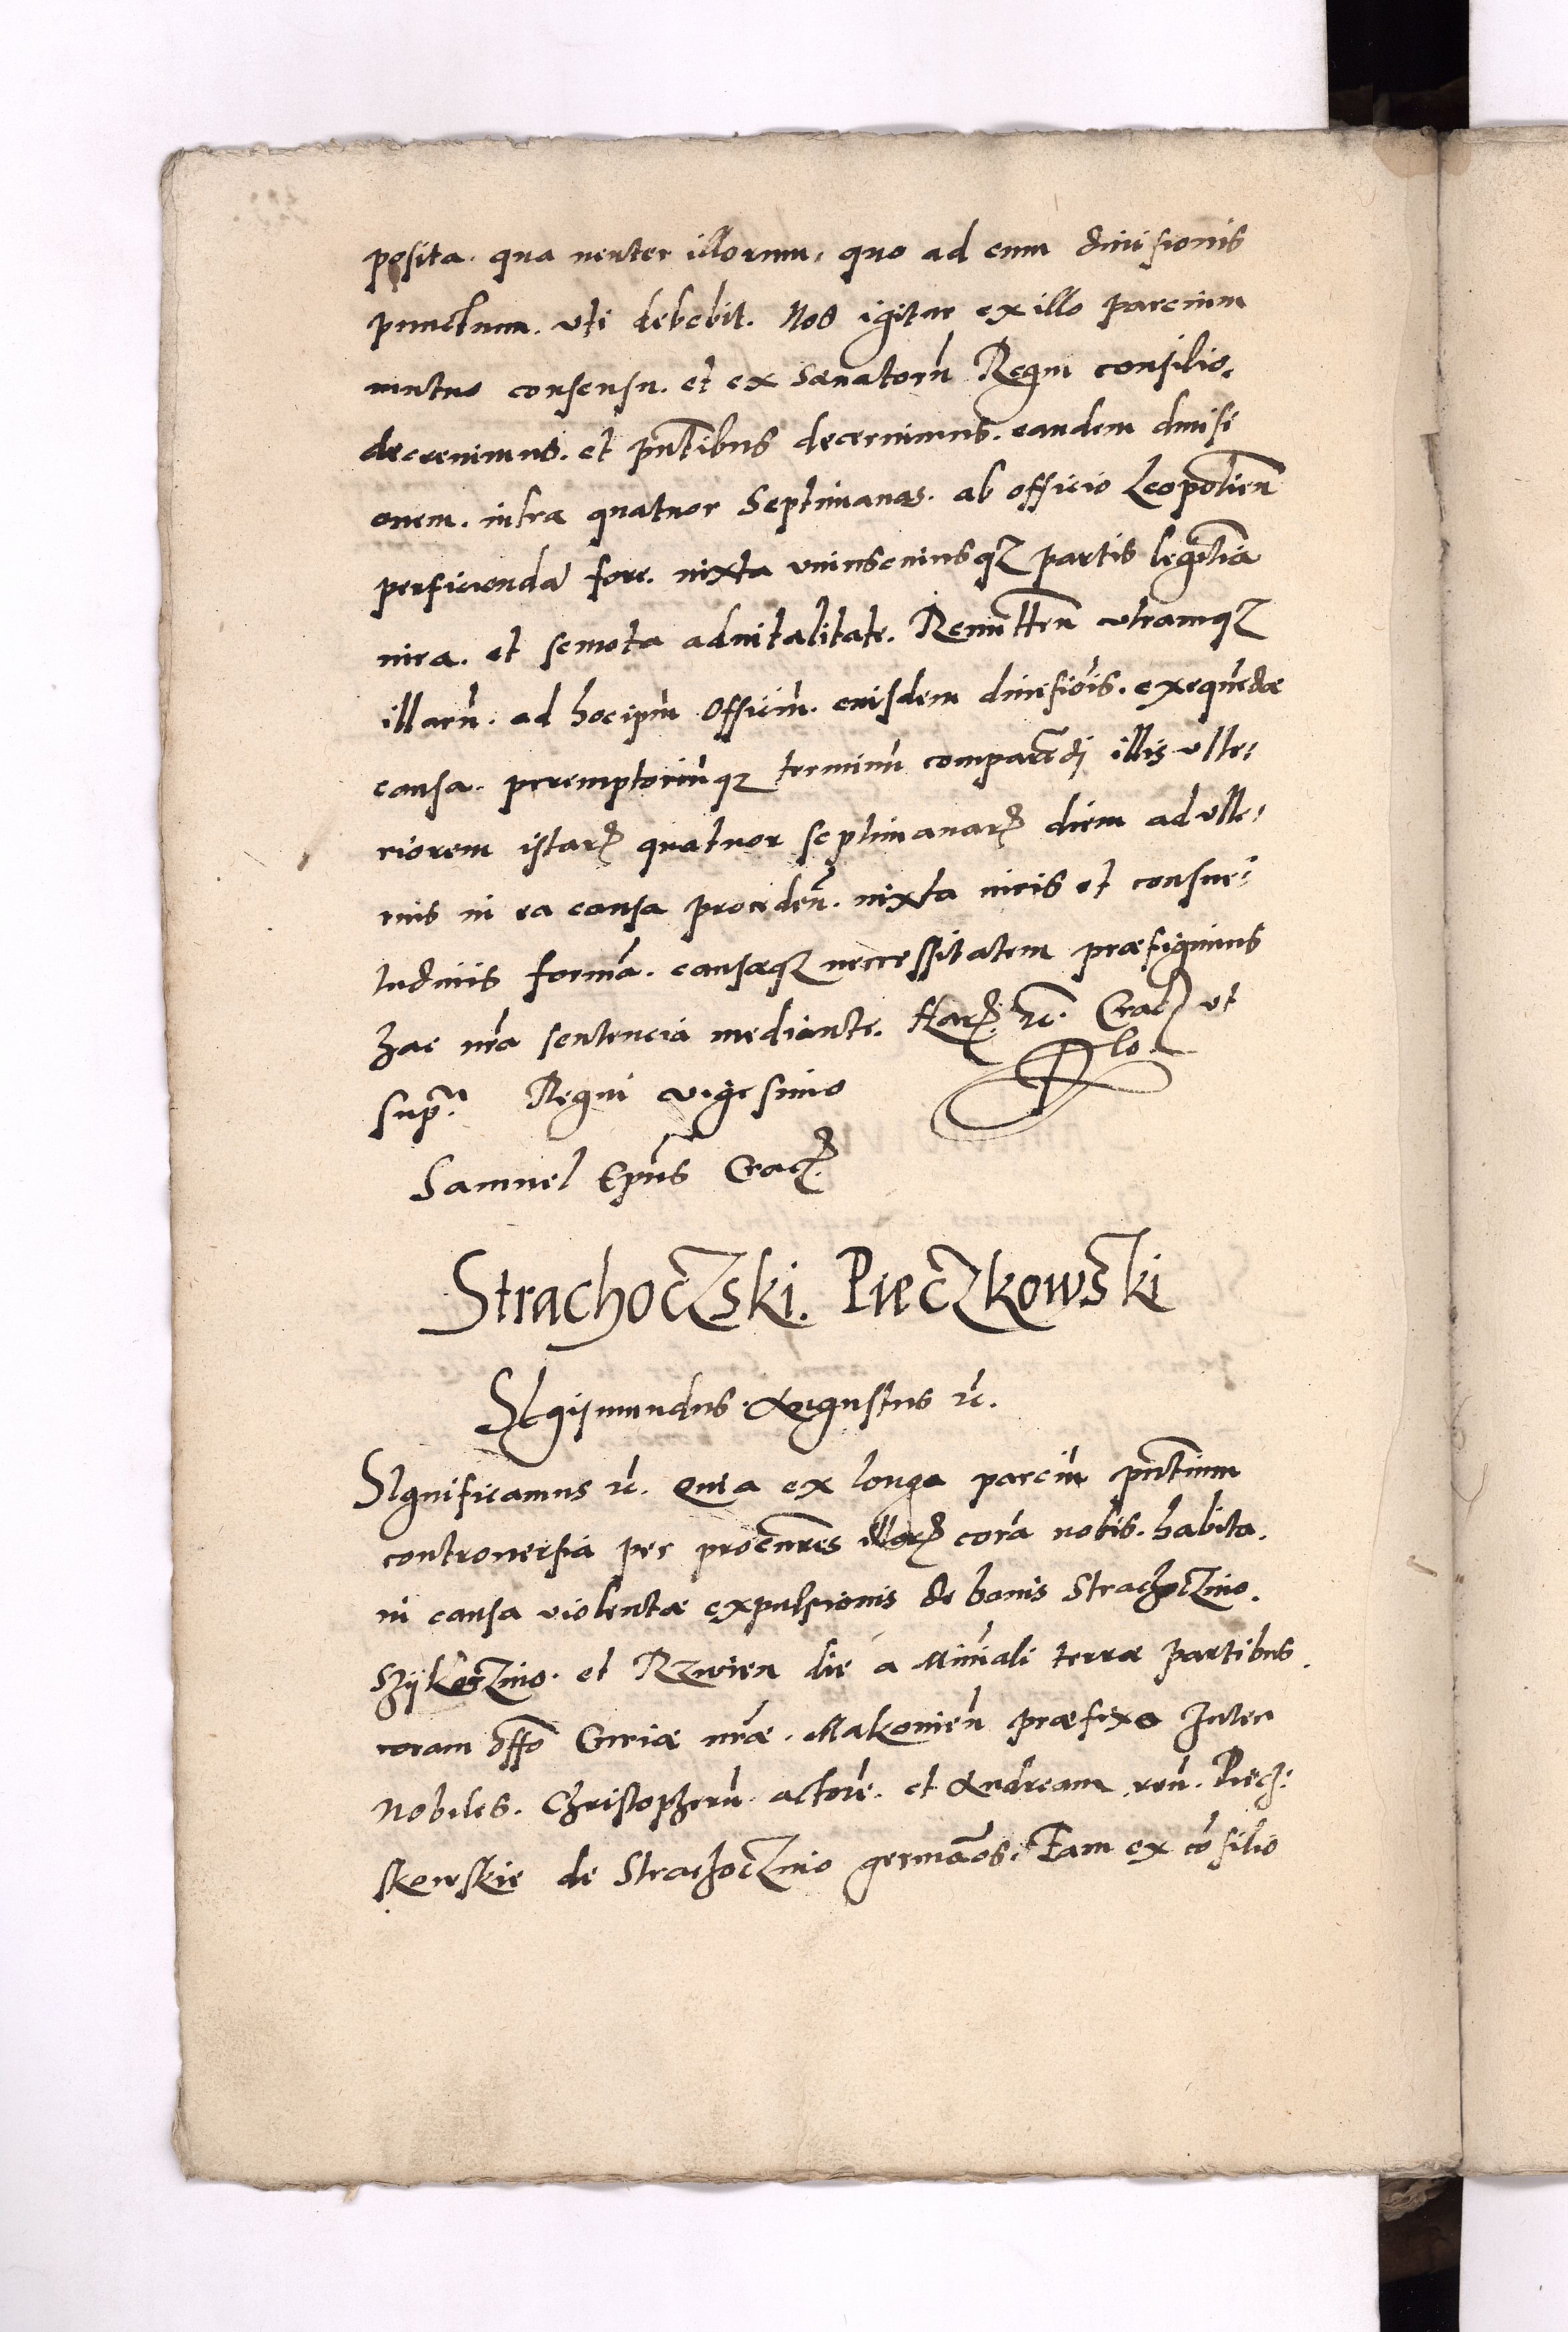 posita. qua neuter illorum, quo ad eum diuisionis
punctum. vti debebit. Nos igitur ex illo parcium
mutuo consensu. et ex Senatorū Regni consilio,
decreuimus. et pñtibus decernimus. eandem diuisi
onem. intra quatuor Septimanas. ab officio Leopolień
perficiendā fore. iuxta vniuscuiusqz partis legitīa
iura. et semota aduitalitate. Remitteñ vtramqz
illarū. ad hoc ipm̄ Officiū. eiusdem diuisiōis. exequēdæ
causa. peremptoriūqz terminū comparēdi illis vlte,
riorem istarꝝ quatuor septimanarꝝ diem ad vlte,
rius in ea causa procedeñ. iuxta iuris et consue,
tudinis formā. causæqz necessitatem præfigimus
hac nrā sentencia mediante. Harꝝ rc̄. Crac̄ vt
supᵃ. Regni vigesimo
Samuel Epūs Crac̄.
StrachocZski. PiecZkowski
SIgismundus Augustus rc̄.
SIgnificamus rc̄. Quia ex longa parciū pñtium
controuersia per procūres illarꝝ corā nobis. habita.
in causa violentæ expulsionis de bonis StrachocZino.
et die a terræ partibus.
coram offo Curiæ nrǣ. Makouień præfixo Inter
Nobiles. Christopherū actorē. et Andream reū. Piecz,
kowskie de StrachocZino germāos. Tam ex cōsilio